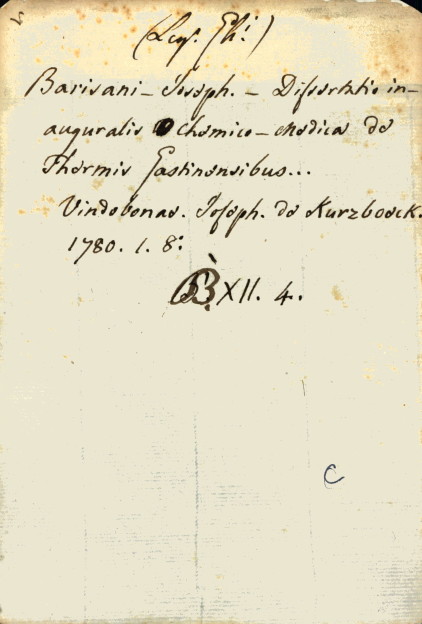 Barisani - Joseph. - Dissertatio in-
auguralis Chemico - Medica de
Thermis Gastinensibus...
Vindobonae. Joseph. de Kurzboeck.
1780. 1. 8.º
B. XII. 4.
C